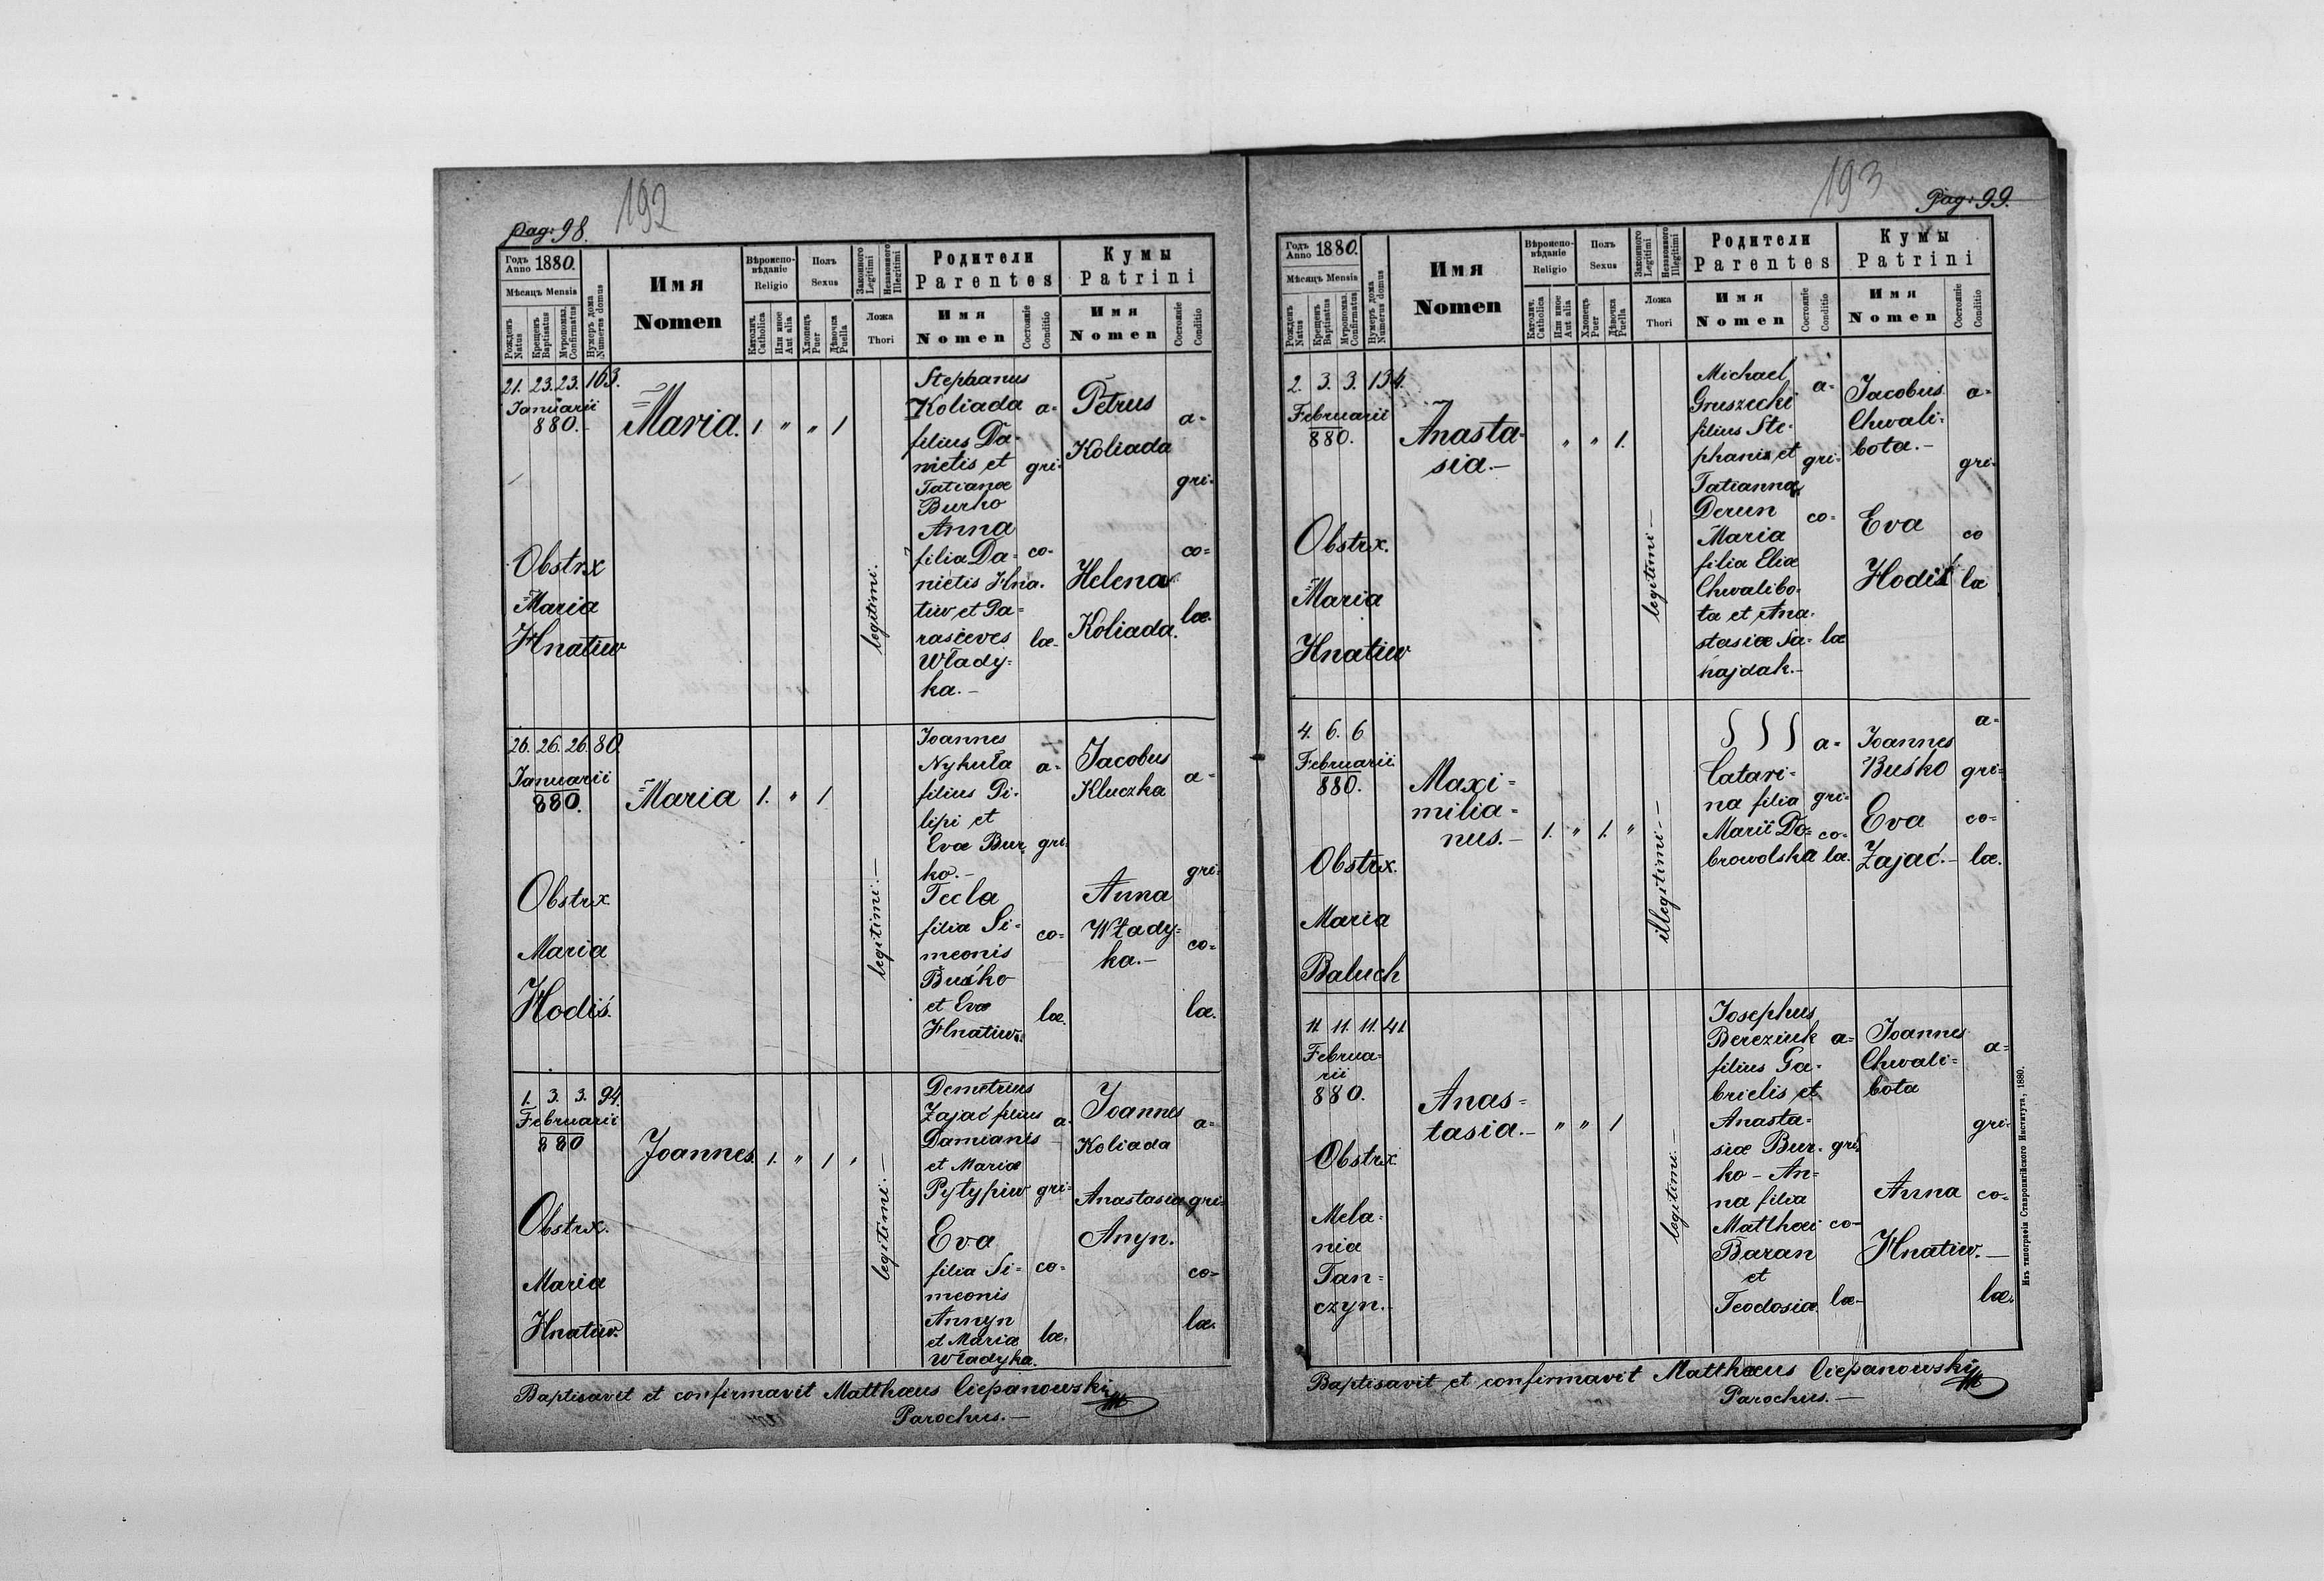 pag: 98.
192
Годъ Anno 1880.
Мѣсяцъ Mensis
Рожденъ Natus
Крещенъ Baptisatus
Мѵропомаз. Confirmatus
Нумеръ дома Numerus domus
Имя
Nomen
Вѣроиспо-
вѣданіе
Religio
Католич. Catholica
Или иное Aut alia
Полъ
Sexus
Хлопецъ Puer
Дѣвочка Puella
Законного Legitimi
Незаконного Illegitimi
Ложа
Thori
Родители
Parentes
Имя
Nomen
Состояніе Conditio
Кумы
Patrini
Имя
Nomen
Состояніе Conditio
21. 23. 23. 163.
Januarii
880.
Obstrx
Maria
Hnatiw
Maria. 1 " " 1
legitimi.
Stephanus
Koliada
filius Da-
nielis et
Tatianæ
Burko
Anna
filia Da-
nielis Hna-
tiw et Pa=
rasceves
Włady=
ka.-
a-
gri-
co-
læ-
Petrus
Koliada
Helena
Koliada.
a-
gri-
co=
læ.
26. 26. 26. 80.
Januarii
880.
Obstrx
Maria
Hodiś.
Maria 1. " 1
legitimi.-
Joannes
Nykuła
filius Pi-
lipi et
Evæ Bur
ko.-
Tecla
filia Si-
meonis
Buśko
et Evæ
Hnatiw.
a-
gri.
co=
læ.
Jacobus
Kluczka
Anna
Włady=
ka.-
a-
gri-
co=
læ.
1. 3. 3. 94.
Februarii
880
Obstrx.
Maria
Hnatiw.
Joannes. 1. " 1
legitimi.-
Demetrius
Zajać filius
Damianis
et Mariæ
Pyłypiw
Eva
filia Si-
meonis
Annyn
et Mariæ
Władyka.
a-
gri=
co=
læ.
Joannes
Koliada
Anastasia
Anyn.
a=
gri=
co-
læ.
Baptisavit et confirmavit Matthæus Ciepanowskij
Parochus.-
193
Pag: 99.
Годъ Anno 1880.
Мѣсяцъ Mensis
Рожденъ Natus
Крещенъ Baptisatus
Мѵропомаз. Confirmatus
Нумеръ дома Numerus domus
Имя
Nomen
Вѣроиспо-
вѣданіе
Religio
Католич. Catholica
Или иное Aut alia
Полъ
Sexus
Хлопецъ Puer
Дѣвочка Puella
Законного Legitimi
Незаконного Illegitimi
Ложа
Thori
Родители
Parentes
Имя
Nomen
Состояніе Conditio
Кумы
Patrini
Имя
Nomen
Состояніе Conditio
2. 3. 3. 134.
Februarii
880.
Obstrx.
Maria
Hnatiw
Anasta-
sia.-
" " 1.
legitimi-
Michael
Gruszecki
filius Ste-
phani et
Tatiannæ
Derun
Maria
filia Eliæ
Chwalibo-
ta et Ana-
stasiæ Sa-
hajdak.-
a-
gri-
co-
læ
Jacobus
Chwali-
bota.-
Eva
Hodiś
a-
gri-
co
læ
4. 6. 6
Februarii
880.
Obstrx.
Maria
Baluch
Maxi-
milia-
nus.-
1. " 1. "
illegitimi-
Catari-
na filia
Marii Do-
browolska
a-
gri-
co-
læ.
Joannes
Buśko
Eva
Zajać.-
a-
gri-
co-
læ.
11. 11. 11. 41.
Februa-
rii
880.
Obstrx.
Mela-
nia
Tan-
czyn.
Anas-
tasia.-
" " 1
legitimi.-
Josephus
Bereziuk
filius Ga-
brielis et
Anasta-
siæ Bur-
ko - An-
na filia
Matthæi
Baran
et
Teodosiæ
a=
gri
co-
læ-
Joannes
Chwali=
bota
Anna
Hnatiw.-
a=
gri-
co-
læ.
Изъ типографіи Ставропигійского Института, 1880.
Baptisavit et confirmavit Matthæus Ciepanowskij
Parochus.-